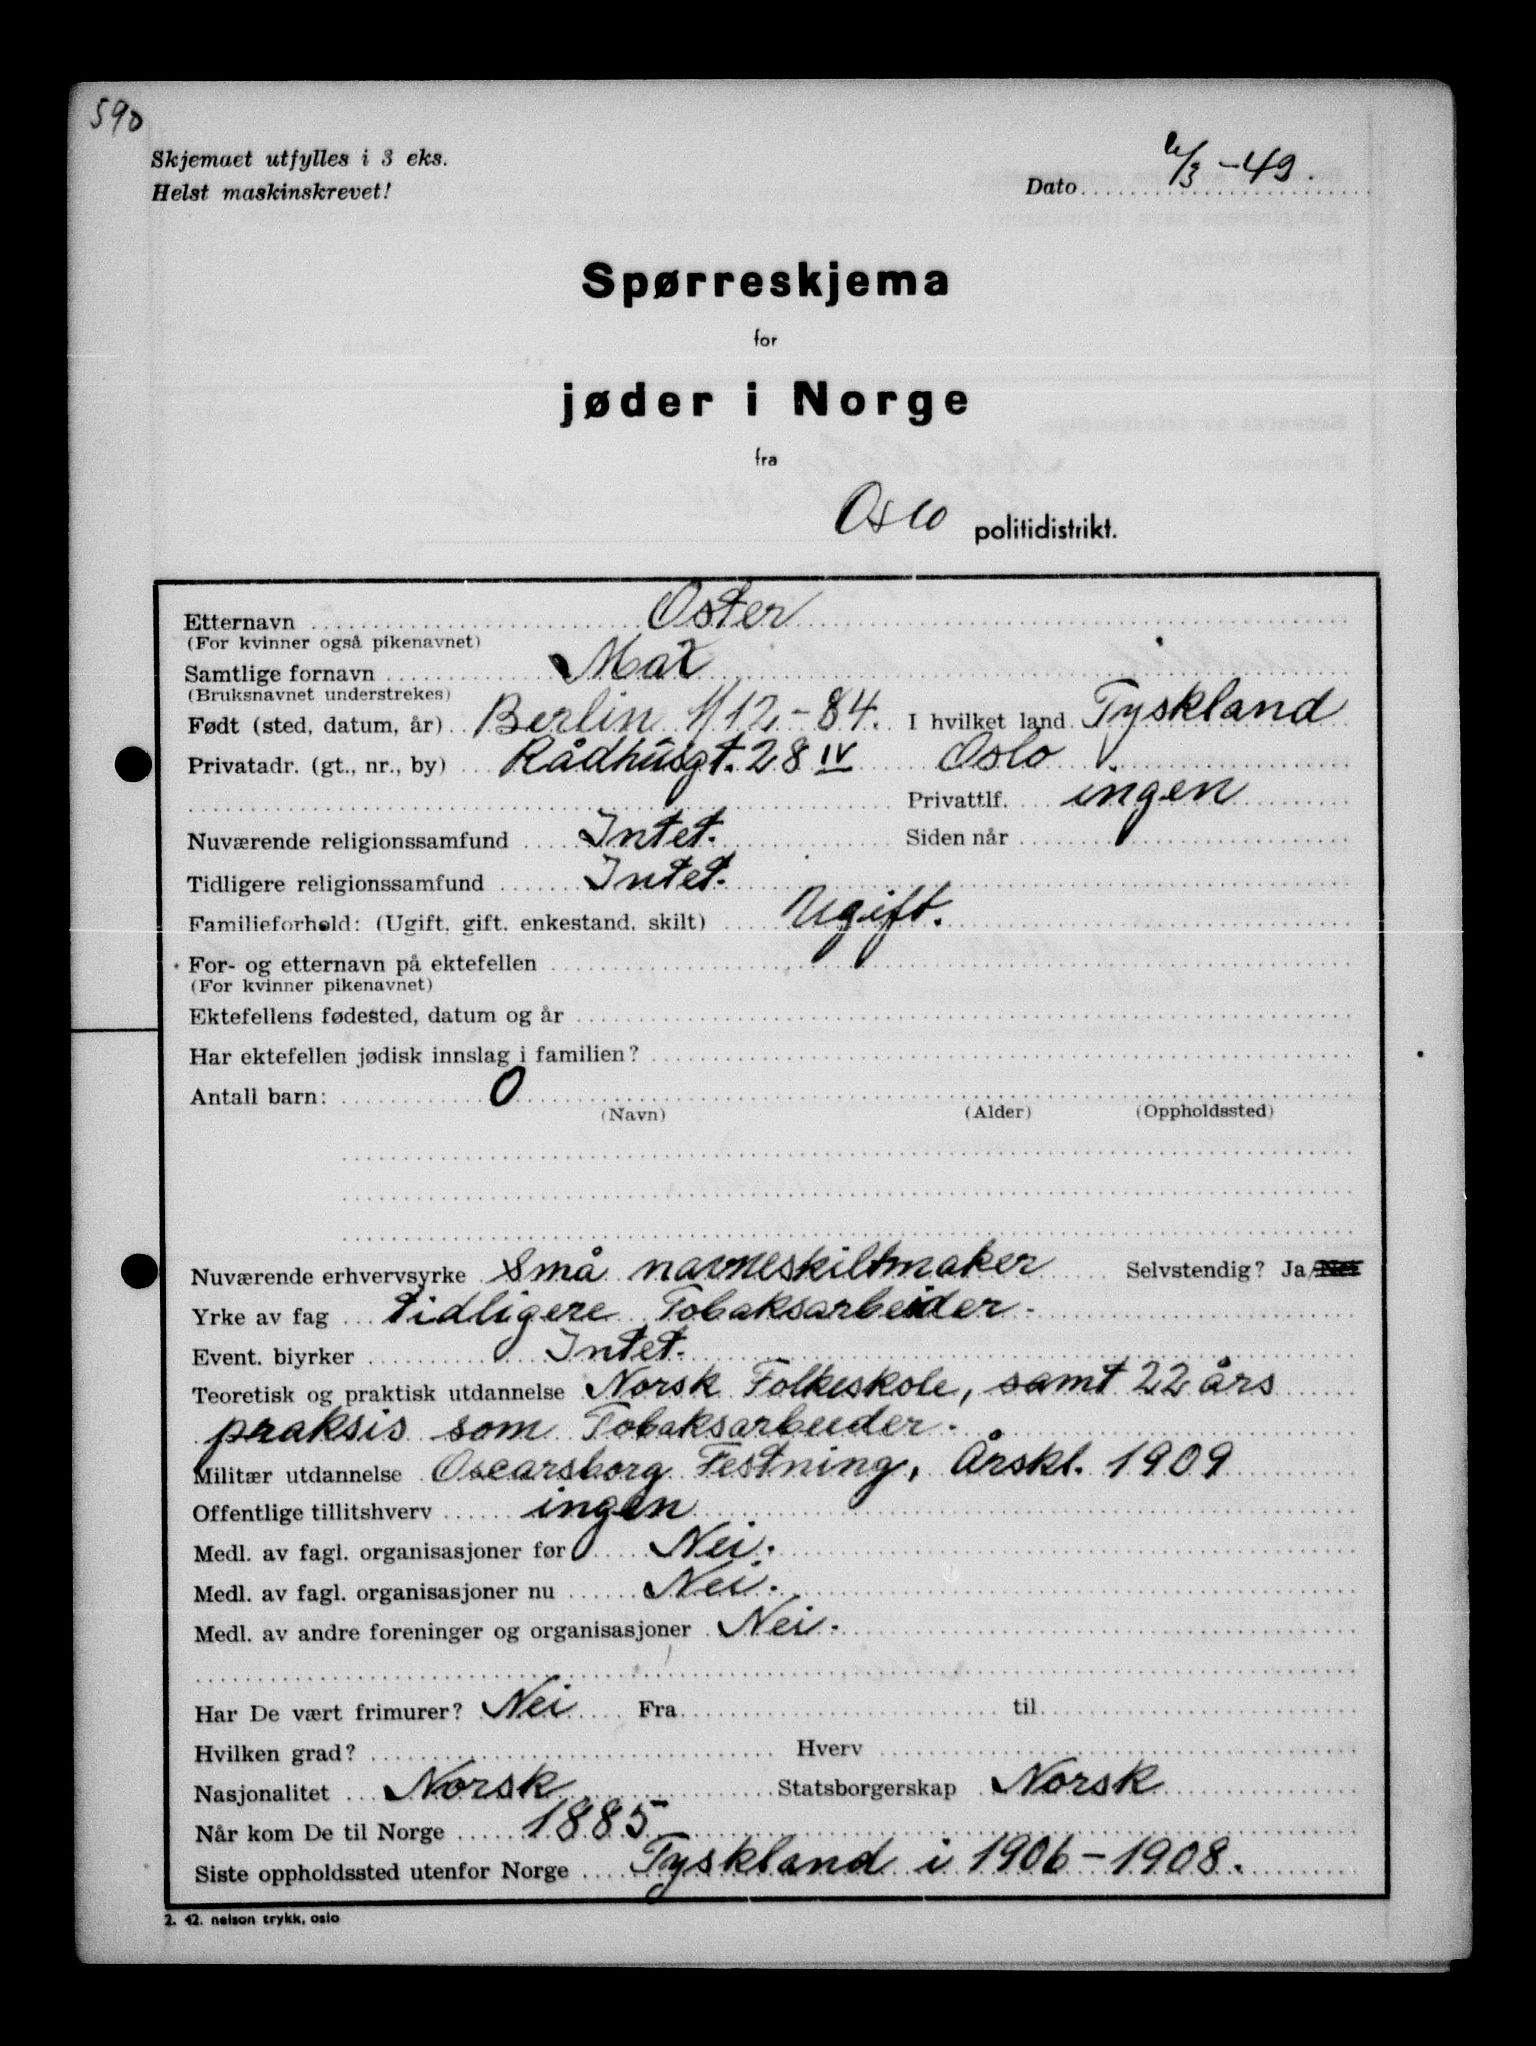 590
Skjemaet utfylles i 3 eks.
Helst maskinskrevet!
Dato /3 - 49.
Spørreskjema
for
jøder i Norge
fra
Oslo politidistrikt.
Etternavn Oster
(For kvinner også pikenavnet)
Samtlige fornavn Max
(Bruksnavnet understrekes)
Født (sted, datum, år) Berlin 1/12 - 84. I hvilket land Tyskland
Privatadr. (gt., nr., by) Rådhusgt. 28 IV Oslo
Privattlf. ingen
Nuværende religionssamfund Intet. Siden når
Tidligere religionssamfund Intet.
Familieforhold: (Ugift, gift, enkestand, skilt) Ugift.
For- og etternavn på ektefellen
(For kvinner pikenavnet)
Ektefellens fødested, datum og år
Har ektefellen jødisk innslag i familien?
Antall barn: 0
(Navn) (Alder) (Oppholdssted)
Nuværende erhvervsyrke Små navneskiltmaker Selvstendig? Ja/Nei
Yrke av fag tidligere Tobaksarbeider.
Event. biyrker Intet.
Teoretisk og praktisk utdannelse Norsk Folkeskole, samt 22 års
praksis som Tobaksarbeider.
Militær utdannelse Oscarsborg Festning, Årskl. 1909
Offentlige tillitshverv ingen
Medl. av fagl. organisasjoner før Nei.
Medl. av fagl. organisasjoner nu Nei.
Medl. av andre foreninger og organisasjoner Nei.
Har De vært frimurer? Nei Fra til
Hvilken grad? Hverv
Nasjonalitet Norsk Statsborgerskap Norsk
Når kom De til Norge 1885
Siste oppholdssted utenfor Norge Tyskland i 1906 - 1908.
2. 42. nelson trykk, oslo